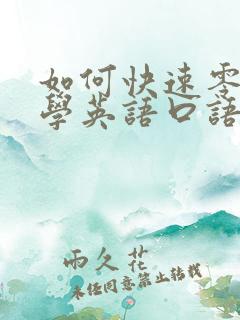 如何快速零
學英語口語
雨久花
未经同意禁止转载